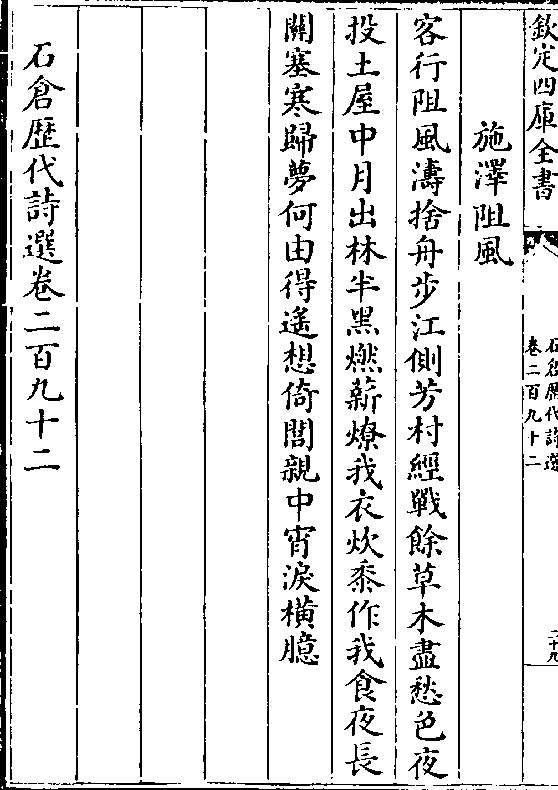 欽定四庫全書
石倉歴代詩選
卷二百九十二
二十九
施澤阻風
客行阻風濤捨舟步江側芳村經戰餘草木盡愁色夜
投土屋中月出林半黑燃薪燎我衣炊黍作我食夜長
關塞寒歸夢何由得遙想倚閭親中宵淚横臆
石倉歴代詩選卷二百九十二